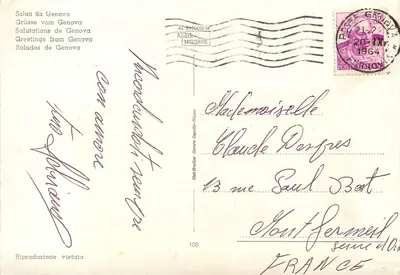 Saluti da Genova
Grüsse vom Genova
Salutations de Genova
Greetings from Genova
Saludos de Genova
Ricordandoti sempre
con amore
Riproduzione vietata
108
POSTE GENOVA
1964
Mademoiselle
Claude Desfres
13 rue Paul Bert
Montfermeil
Seine et Oise
FRANCE